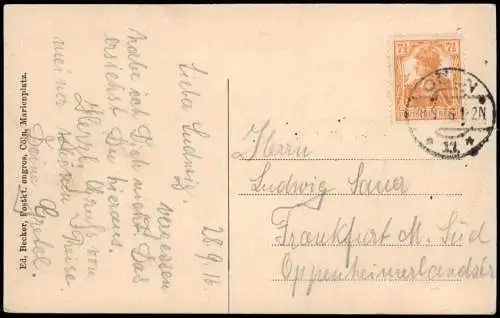 Ed. Becker, Postkt. engros, Cöln, Marienplatz.
28.9.16
Lieber Ludwig,
habe ich Dich nicht vergessen
das ersiehst Du hieraus.
Herzl. Gruß von
meiner Reise.
Deine Gretel.
7½ 7½
CÖLN
1-2N
* 11 *
Herrn
Ludwig Sauer
Frankfurt M. Süd
Oppenheimerlandstr